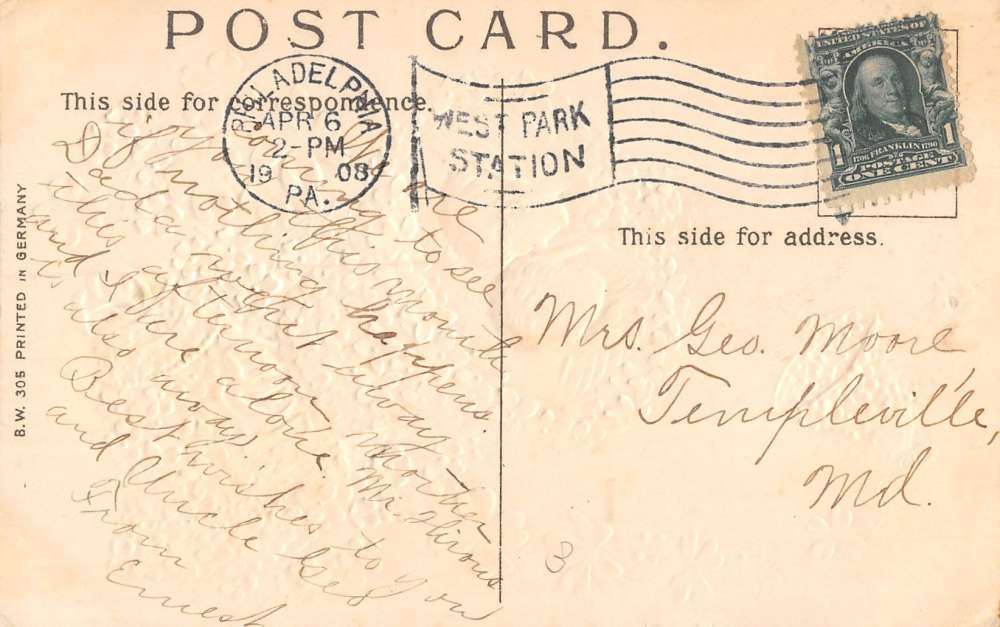 POST CARD.
This side for correspondence.
PHILADELPHIA
APR 6
2-PM
1908
PA.
WEST PARK
STATION
UNITED STATES OF
AMERICA
1706 FRANKLIN 1790
POSTAGE
1 ONE CENT 1
This side for address.
B.W. 305 PRINTED IN GERMANY
coming to see
if nothing happens.
this month
Dada went away
this afternoon Mother
and I are alone
is also away.
Best wishes to you
and Uncle Geo
From
Ernest
Mrs. Geo. Moore
Templeville,
Md.
3